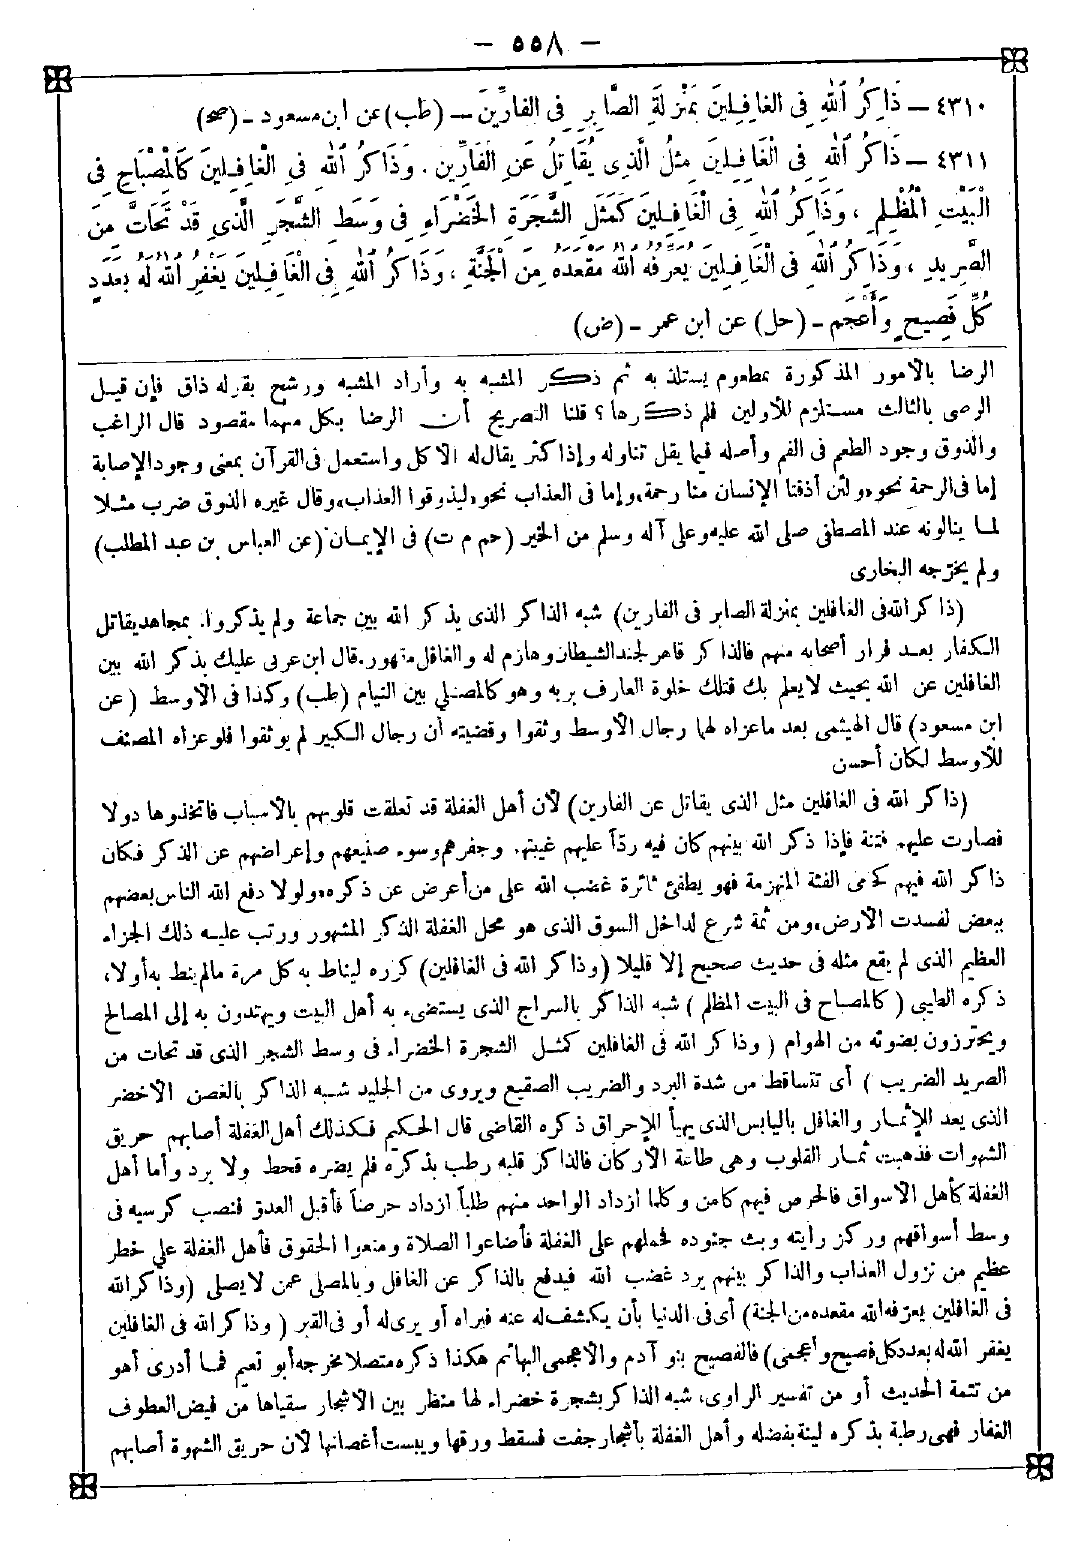 — ٥٥٨ —
٤٣١٠ — ذَاكِرُ ٱللهِ فِى الغَافِلِينَ بِمَنْزِلَةِ الصَّابِرِ فِى الفَارِّينَ — (طب) عن ابن مسعود - (صح)
٤٣١١ — ذَاكِرُ ٱللهِ فِى الْغَافِلِينَ مِثْلُ الَّذِى يُقَاتِلُ عَنِ الْفَارِّينَ . وَذَاكِرُ ٱللهِ فِى الْغَافِلِينَ كَالْمِصْبَاحِ فِى
الْبَيْتِ الْمُظْلِمِ ، وَذَاكِرُ ٱللهِ فِى الْغَافِلِينَ كَمَثَلِ الشَّجَرَةِ الْخَضْرَاءِ فِى وَسَطِ الشَّجَرِ الَّذِى قَدْ تَحَاتَّ مِنَ
الصَّرِيدِ ، وَذَاكِرُ ٱللهِ فِى الْغَافِلِينَ يُعَرِّفُهُ ٱللهُ مَقْعَدَهُ مِنَ الْجَنَّةِ ، وَذَاكِرُ ٱللهِ فِى الْغَافِلِينَ يَغْفِرُ ٱللهُ لَهُ بِعَدَدِ
كُلِّ فَصِيحٍ وَأَعْجَمَ - (حل) عن ابن عمر - (ض)
الرضا بالأمور المذكورة بمطعوم يستلذ به ثم ذكر المشبه به وأراد المشبه ورشح بقوله ذاق فإن قيل
الرضى بالثالث مستلزم للأولين فلم ذكرها؟ قلنا التصريح أن الرضا بكل منهما مقصود قال الراغب
والذوق وجود الطعم فى الفم وأصله فيما يقل تناوله وإذا كثر يقال له الأكل واستعمل فى القرآن بمعنى وجود الإصابة
إما فى الرحمة نحو «ولئن أذقنا الإنسان منا رحمة» وإما فى العذاب نحو «ليذوقوا العذاب» وقال غيره الذوق ضرب مثلا
لما ينالونه عند المصطفى صلى الله عليه وعلى آله وسلم من الخير (حم م ت) فى الإيمان (عن العباس بن عبد المطلب)
ولم يخرجه البخارى
(ذاكر الله فى الغافلين بمنزلة الصابر فى الفارين) شبه الذاكر الذى يذكر الله بين جماعة ولم يذكروا. بمجاهد يقاتل
الكفار بعد فرار أصحابه منهم فالذاكر قاهر لجند الشيطان وهازم له والغافل مقهور. قال ابن عربى عليك بذكر الله بين
الغافلين عن الله بحيث لا يعلم بك فتلك خلوة العارف بربه وهو كالمصلى بين النيام (طب) وكذا فى الأوسط (عن
ابن مسعود) قال الهيثمى بعد ما عزاه لهما رجال الأوسط وثقوا وقضيته أن رجال الكبير لم يوثقوا فلو عزاه المصنف
للأوسط لكان أحسن
(ذاكر الله فى الغافلين مثل الذى يقاتل عن الفارين) لأن أهل الغفلة قد تعلقت قلوبهم بالأسباب فاتخذوها دولا
فصارت عليهم فتنة فإذا ذكر الله بينهم كان فيه ردّا عليهم غيبتهم وجفوهم وسوء صنيعهم وإعراضهم عن الذكر فكان
ذاكر الله فيهم كحمى الفئة المنهزمة فهو يطفئ ثائرة غضب الله على من أعرض عن ذكره «ولولا دفع الله الناس بعضهم
ببعض لفسدت الأرض» ومن ثمة شرع لداخل السوق الذى هو محل الغفلة الذكر المشهور ورتب عليه ذلك الجزاء
العظيم الذى لم يقع مثله فى حديث صحيح إلا قليلا (وذاكر الله فى الغافلين) كرره ليناط به كل مرة مالم ينط به أولا،
ذكره الطيبى (كالمصباح فى البيت المظلم) شبه الذاكر بالسراج الذى يستضىء به أهل البيت ويهتدون به إلى المصالح
ويحترزون بضوئه من الهوام (وذاكر الله فى الغافلين كمثل الشجرة الخضراء فى وسط الشجر الذى قد تحات من
الصريد الضريب) أى تتساقط من شدة البرد والضريب الصقيع ويروى من الجليد شبه الذاكر بالغصن الأخضر
الذى يعد للإثمار والغافل باليابس الذى يهيأ للإحراق ذكره القاضى قال الحكيم فكذلك أهل الغفلة أصابهم حريق
الشهوات فذهبت ثمار القلوب وهى طاعة الأركان فالذاكر قلبه رطب بذكره فلم يضره قحط ولا برد وأما أهل
الغفلة كأهل الأسواق فالحرص فيهم كامن وكلما ازداد الواحد منهم طلباً ازداد حرصاً فأقبل العدو فنصب كرسيه فى
وسط أسواقهم وركز رايته وبث جنوده فحملهم على الغفلة فأضاعوا الصلاة ومنعوا الحقوق فأهل الغفلة على خطر
عظيم من نزول العذاب والذاكر بينهم يرد غضب الله فيدفع بالذاكر عن الغافل وبالمصلى عمن لا يصلى (وذاكر الله
فى الغافلين يعرفه الله مقعده من الجنة) أى فى الدنيا بأن يكشف له عنه فيراه أو يرى له أو فى القبر (وذاكر الله فى الغافلين
يغفر الله له بعدد كل فصيح وأعجمى) فالفصيح بنو آدم والأعجمى البهائم هكذا ذكره متصلا مخرجه أبو نعيم فما أدرى أهو
من تتمة الحديث أو من تفسير الراوى، شبه الذاكر بشجرة خضراء لها منظر بين الأشجار سقياها من فيض العطوف
الغفار فهى رطبة بذكره لينة بفضله وأهل الغفلة بأشجار جفت فسقط ورقها ويبست أغصانها لأن حريق الشهوة أصابهم